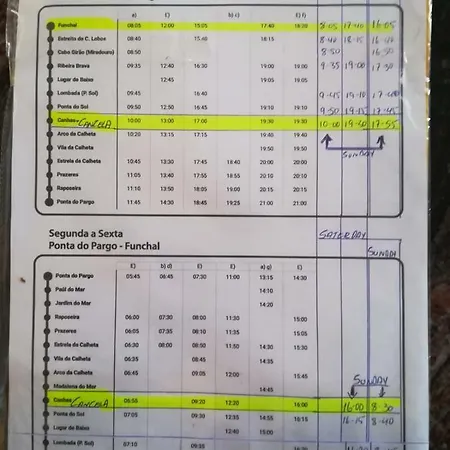 a) c) b) c) E) f)
Funchal 08:05 12:00 15:05 17:40 18:30 8-05 17-40 16-05
Estreito de C. Lobos 08:40 15:40 18:15 8-40 18-15 16-40
Cabo Girão (Miradouro) 08:50 8-50 16-50
Ribeira Brava 09:35 12:40 16:30 19:00 19:00 9-35 19-00 17-30
Lugar de Baixo 12:45 19:05 19:05
Lombada (P. Sol) 09:45 16:40 9-45 19-10 17-40
Ponta do Sol 09:50 12:50 16:45 19:10 19:10 9-50 19-15 17-45
Canhas CANCELA 10:00 13:00 17:00 19:30 19:30 10-00 17-55
Arco da Calheta 10:20 13:15 17:15 19:40 19:40
Vila da Calheta 19:50 19:50 SUNDAY
Estrela da Calheta 10:45 13:30 17:45 18:40 20:00 20:00
Prazeres 11:05 13:45 18:00 19:00 20:15 20:15
Raposeira 11:10 13:50 18:05 19:00 20:20 20:20
Ponta do Pargo 11:45 14:30 18:45 19:25 21:00 21:00
Segunda a Sexta SATERDAY
Ponta do Pargo - Funchal SUNDAY
E) b) d) E) E) a) g) E)
Ponta do Pargo 05:45 06:45 07:30 11:00 13:15 14:30
Paúl do Mar 14:10
Jardim do Mar 14:20
Raposeira 06:00 07:30 08:05 11:30 15:00
Prazeres 06:05 07:35 08:10 11:35 15:05
Estrela da Calheta 06:30 08:00 08:50 11:50 14:30 15:30
Vila da Calheta 08:55 14:35 15:35
Arco da Calheta 06:45 09:05 12:00 15:45 SUNDAY
Madalena do Mar 14:45
Canhas CANCELA 06:55 09:20 12:30 16:00 16-00 8-30
Ponta do Sol 07:05 09:30 12:35 14:55 16:10 16-15 8-40
Lugar de Baixo 12:40 15:00
Lombada (P. Sol) 07:10